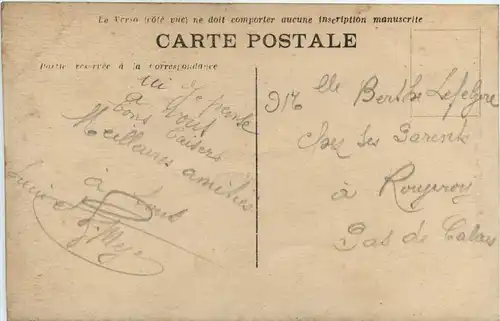 Le Verso (côté vue) ne doit comporter aucune inscription manuscrite
CARTE POSTALE
Partie réservée à la Correspondance
Je pense
à vous
Bons baisers
Meilleures amitiés
à tous
Mlle Berthe Lefebvre
chez ses Parents
à
Pas de Calais